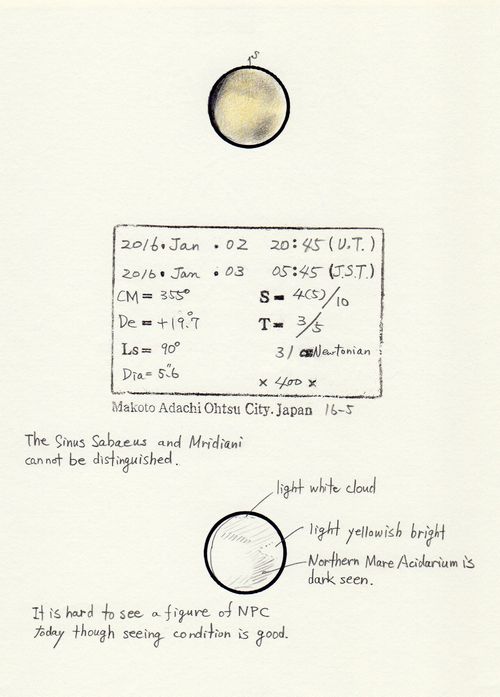 S
2016. Jan . 02 20:45 (U.T.)
2016. Jan . 03 05:45 (J.S.T.)
CM = 355° S = 4(5)/10
De = +19.°7 T = 3/5
Ls = 90° 31 cm Newtonian
Dia = 5."6 × 400 ×
Makoto Adachi Ohtsu City. Japan 16-5
The Sinus Sabaeus and Mridiani
cannot be distinguished.
light white cloud
light yellowish bright
Northern Mare Acidarium is
dark seen.
It is hard to see a figure of NPC
today though seeing condition is good.